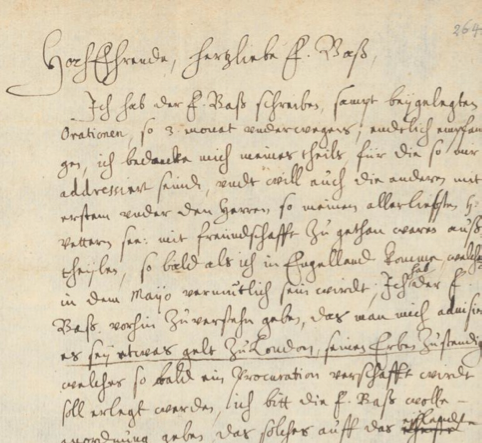 264
HochEhrende, hertzliebe F. Baß,
Ich hab der F. Baß schreiben, sampt beÿgelegten
Orationen, so 3 monat underwegens, endtlich empfan
gen, ich bedancke mich meines theils für die so mir
addressiert seind, undt will auch die anderen mit
erstem under den Herren so meinem allerliebsten H:
vettern see: mit freündschafft zu gethan waren auß
theilen, so bald als ich in Engelland komme, welches
in dem Mayo vermutlich sein wirdt, Ich hab der F.
Baß vorhin zuverstehn geben, das man mich advisiert
es seÿ etwas gelt zu London, seinen Erben zustendig
welches so bald ein Procuration verschafft wirdt
soll erlegt werden, ich bitt die F. Baß wolle
anordnung geben, das solches auff das